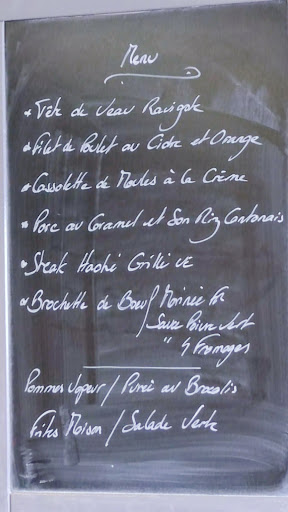 Menu
* Tête de Veau Ravigote
* Filet de Poulet au Cidre et Orange
* Cassolette de Moules à la Crème
* Porc au Caramel et Son Riz Cantonais
* Steak Haché Grillé VF
* Brochette de Boeuf Marinée
/ Sauce Poivre Vert
" 4 Fromages
Pommes Vapeur / Purée au Brocolis
Frites Maison / Salade Verte